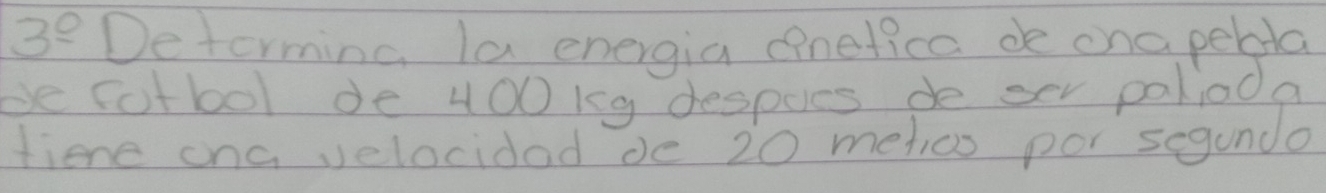 3º Determina la energia cinetica de una pelota
de futbol de 400 kg despues de ser paliada
tiene una velocidad de 20 metros por segundo